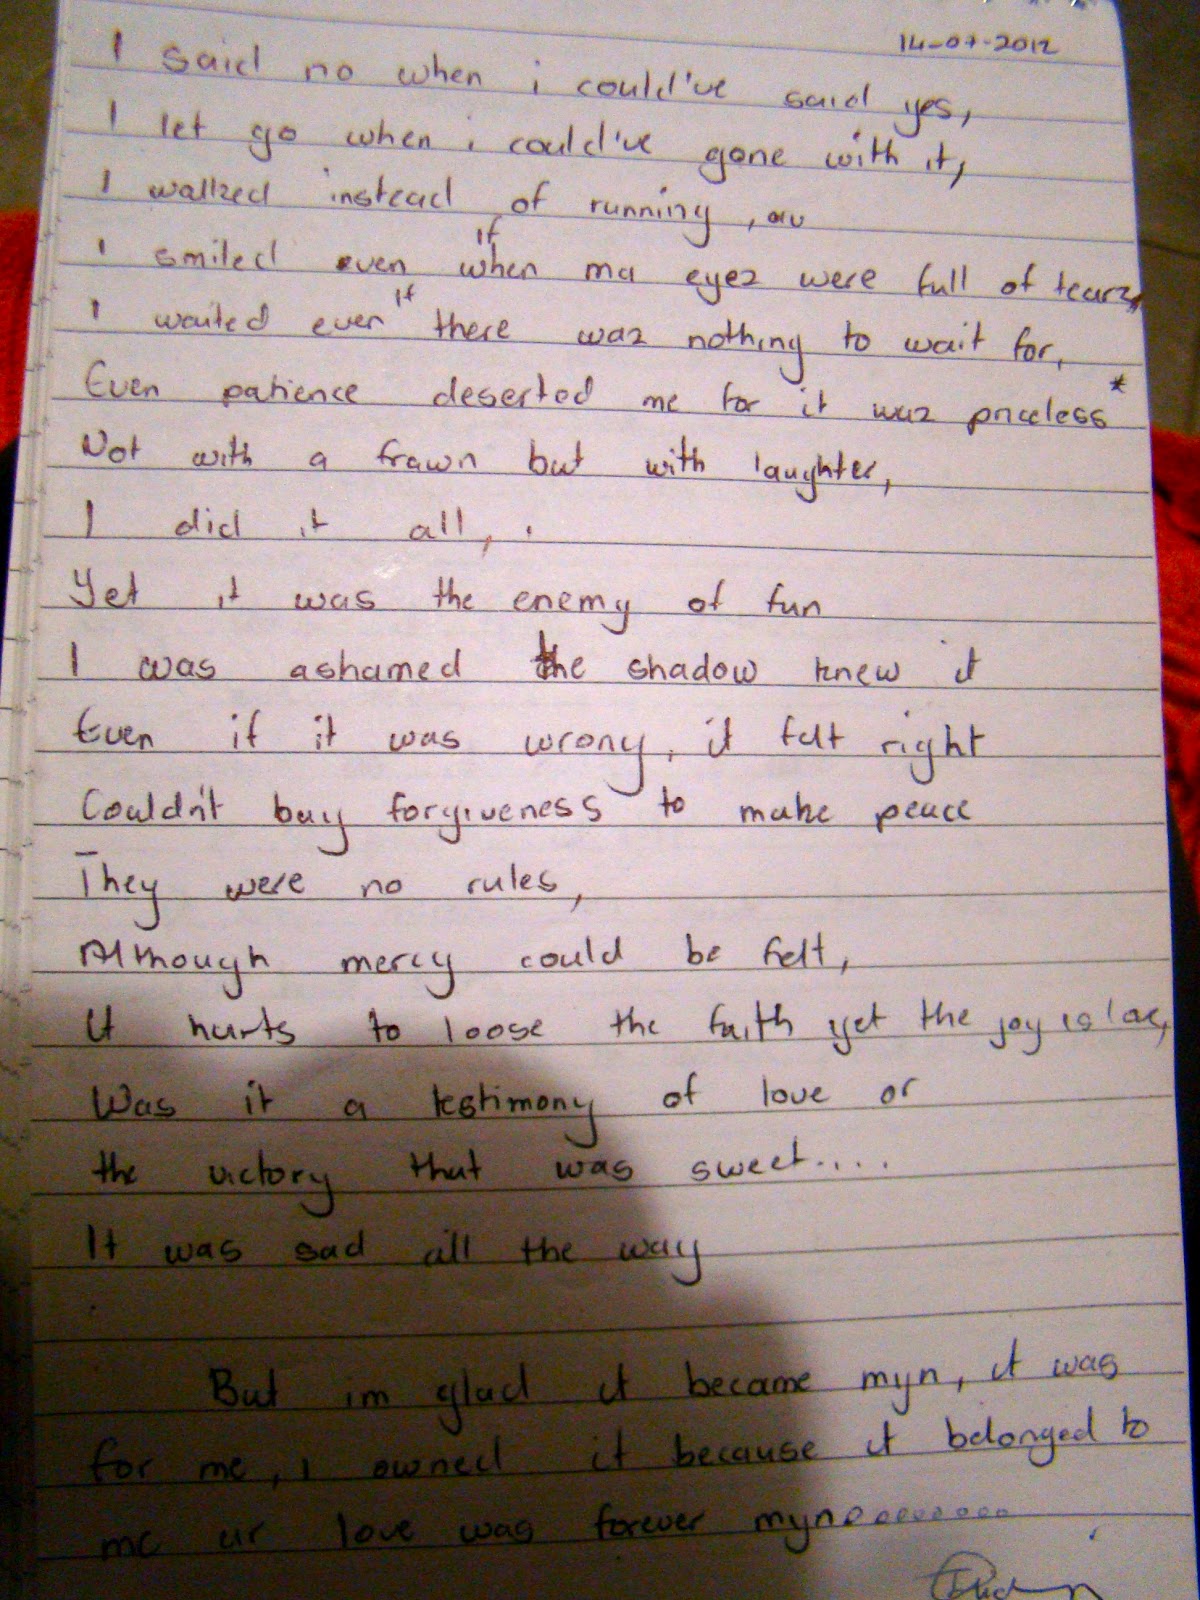 14-07-2012
I said no when i could've said yes,
I let go when i could've gone with it,
I walked instead of running,
I smiled even if when ma eyez were full of tearz,
I waited even if there waz nothing to wait for,
Even patience deserted me for it waz priceless*
Not with a frawn but with laughter,
I did it all,
Yet it was the enemy of fun
I was ashamed the shadow knew it
Even if it was wrong, it felt right
Couldn't buy forgiveness to make peace
They were no rules,
Although mercy could be felt,
It hurts to loose the faith yet the joy is
Was it a testimony of love or
the victory that was sweet....
It was sad all the way
But im glad it became myn, it was
for me, i owned it because it belonged to
me ur love was forever myn